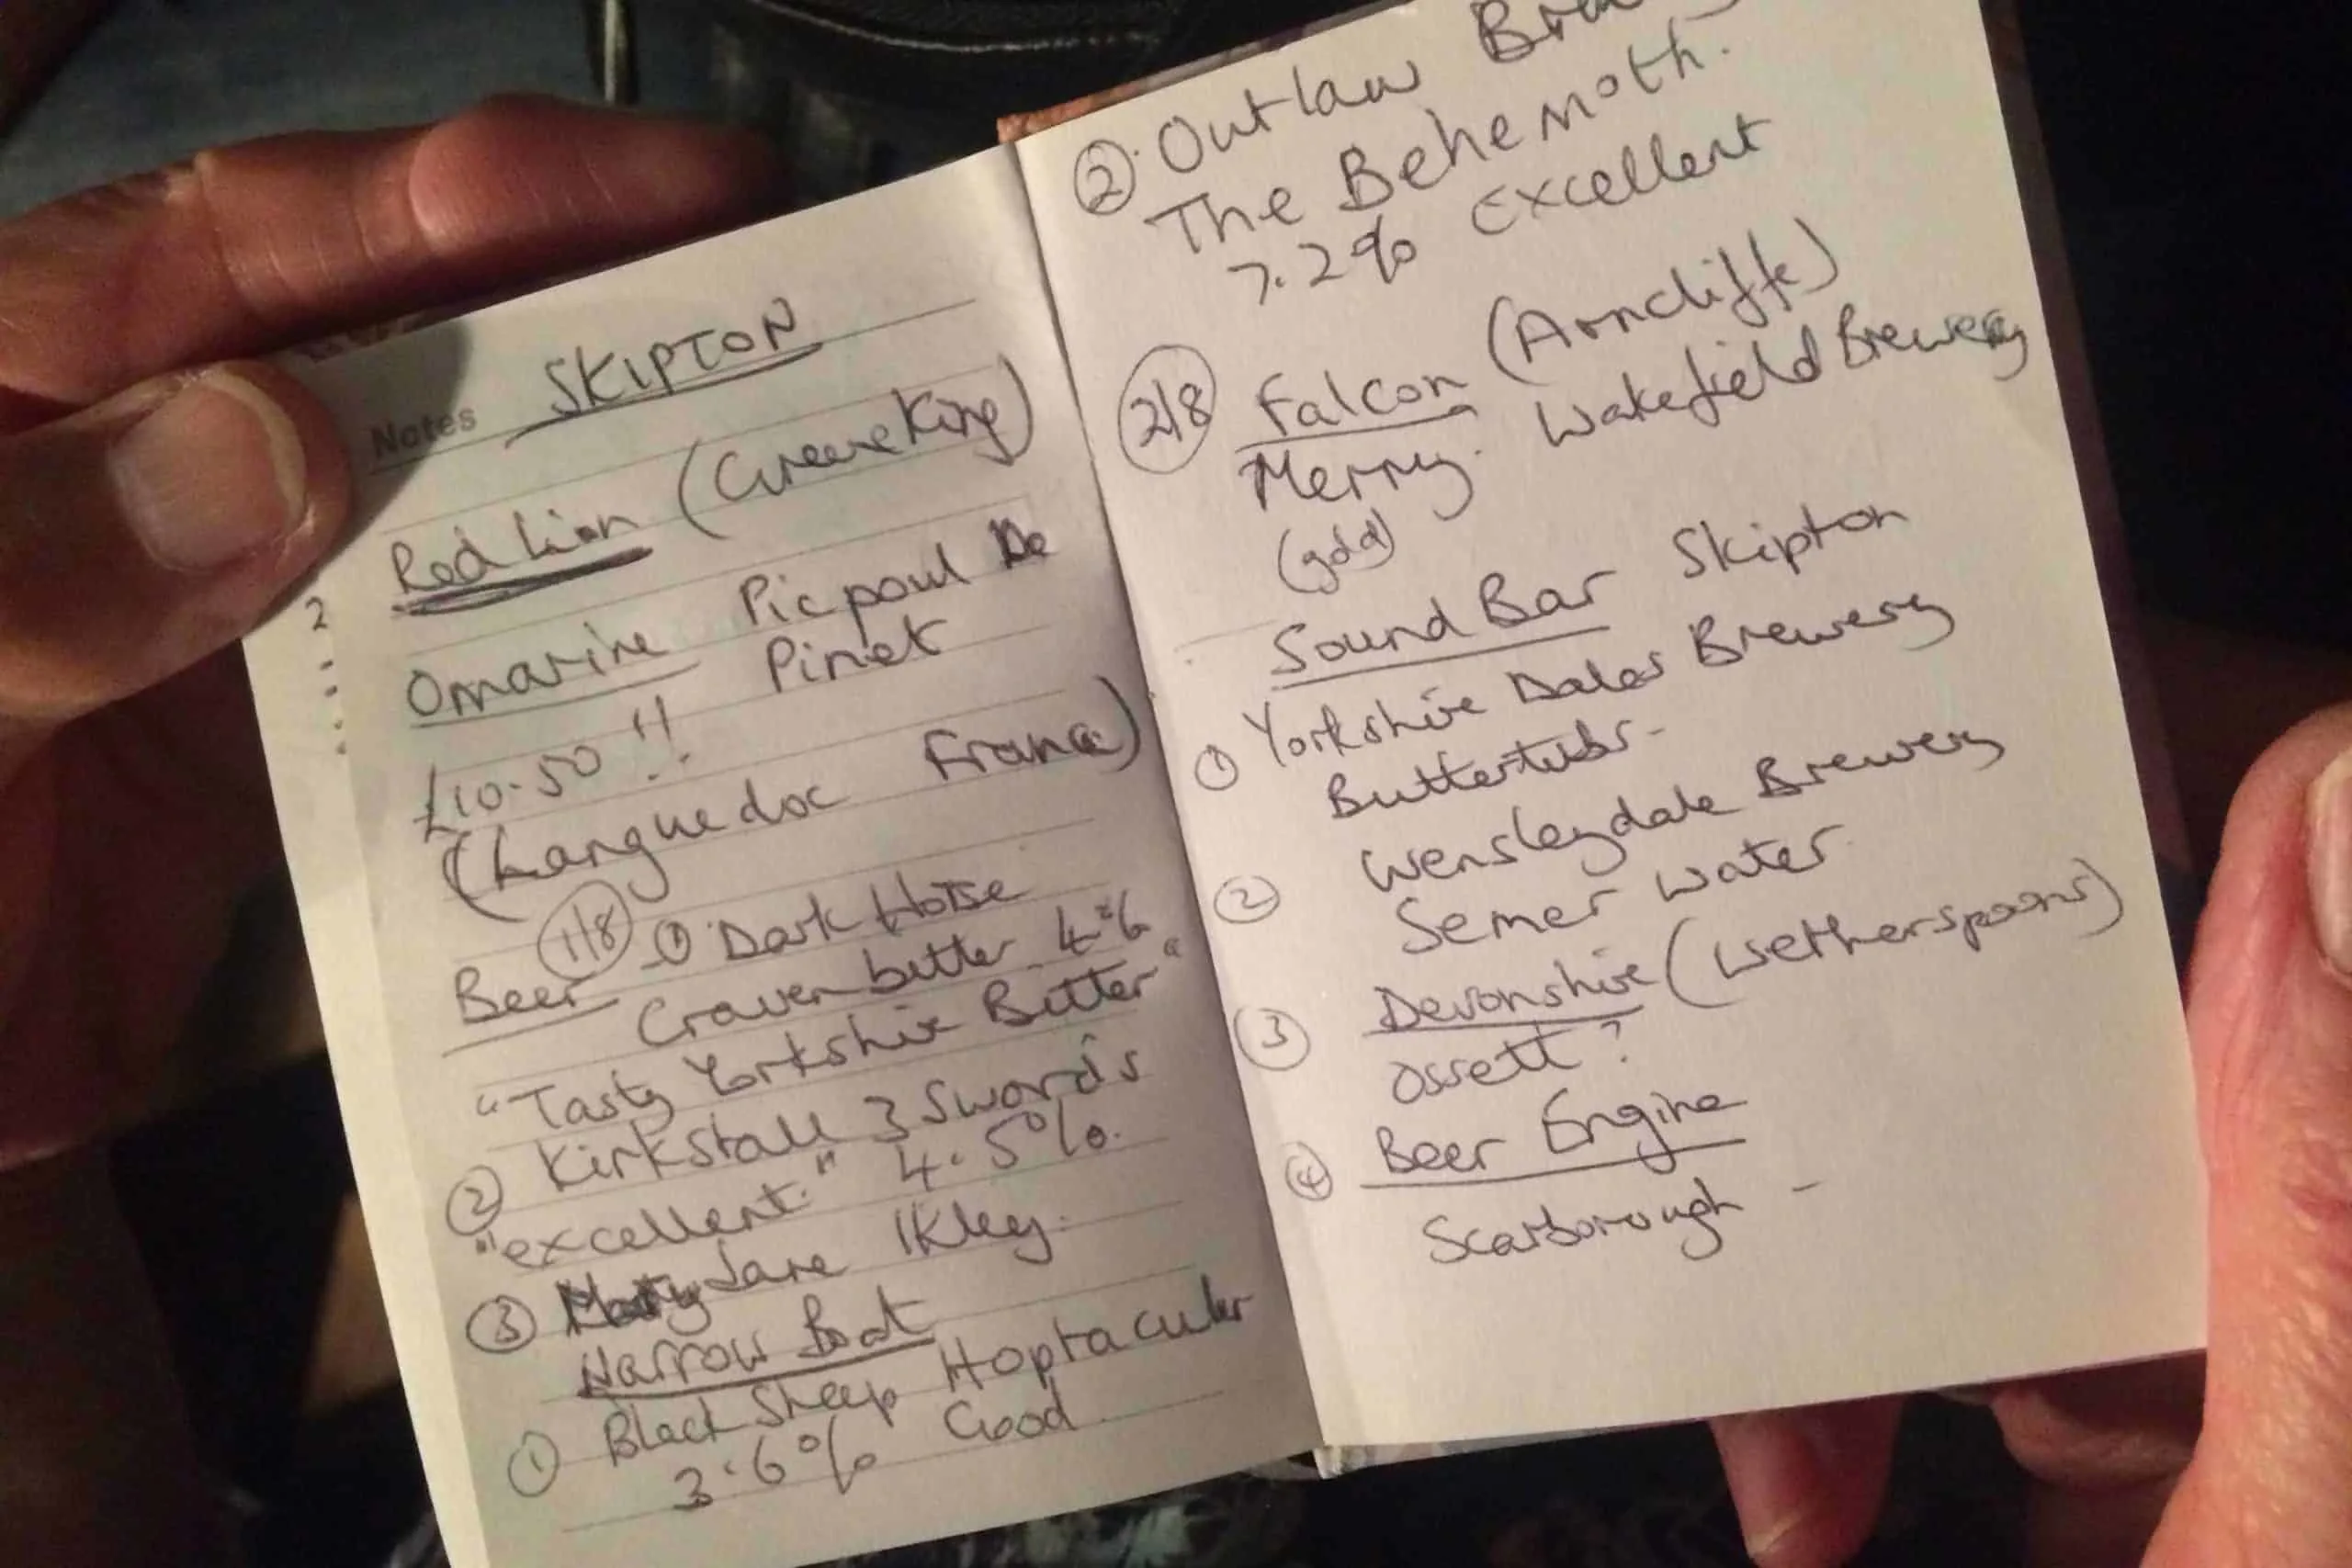 Notes SKIPTON
Red Lion (Greene King)
2
Omarine Picpoul De
Pinet
£10.50 !!
(Languedoc France)
1/8 ① Dark Horse
Beer Craven bitter 4.6
"Tasty Yorkshire Bitter"
② Kirkstall 3 Swords
"excellent." 4.5%.
③ Mary Jane Ikley.
Narrow Boat
① Black Sheep Hoptacular
3.6% Good
② Outlaw
The Behemoth.
7.2% Excellent
2/8 Falcon (Arncliffe)
Merry. Wakefield Brewery
(gold)
Sound Bar Skipton
① Yorkshire Dales Brewery
Buttertubs-
Wensleydale Brewery
② Semer Water
Devonshire (Wetherspoons)
③ Ossett ?
④ Beer Engine
Scarborough -